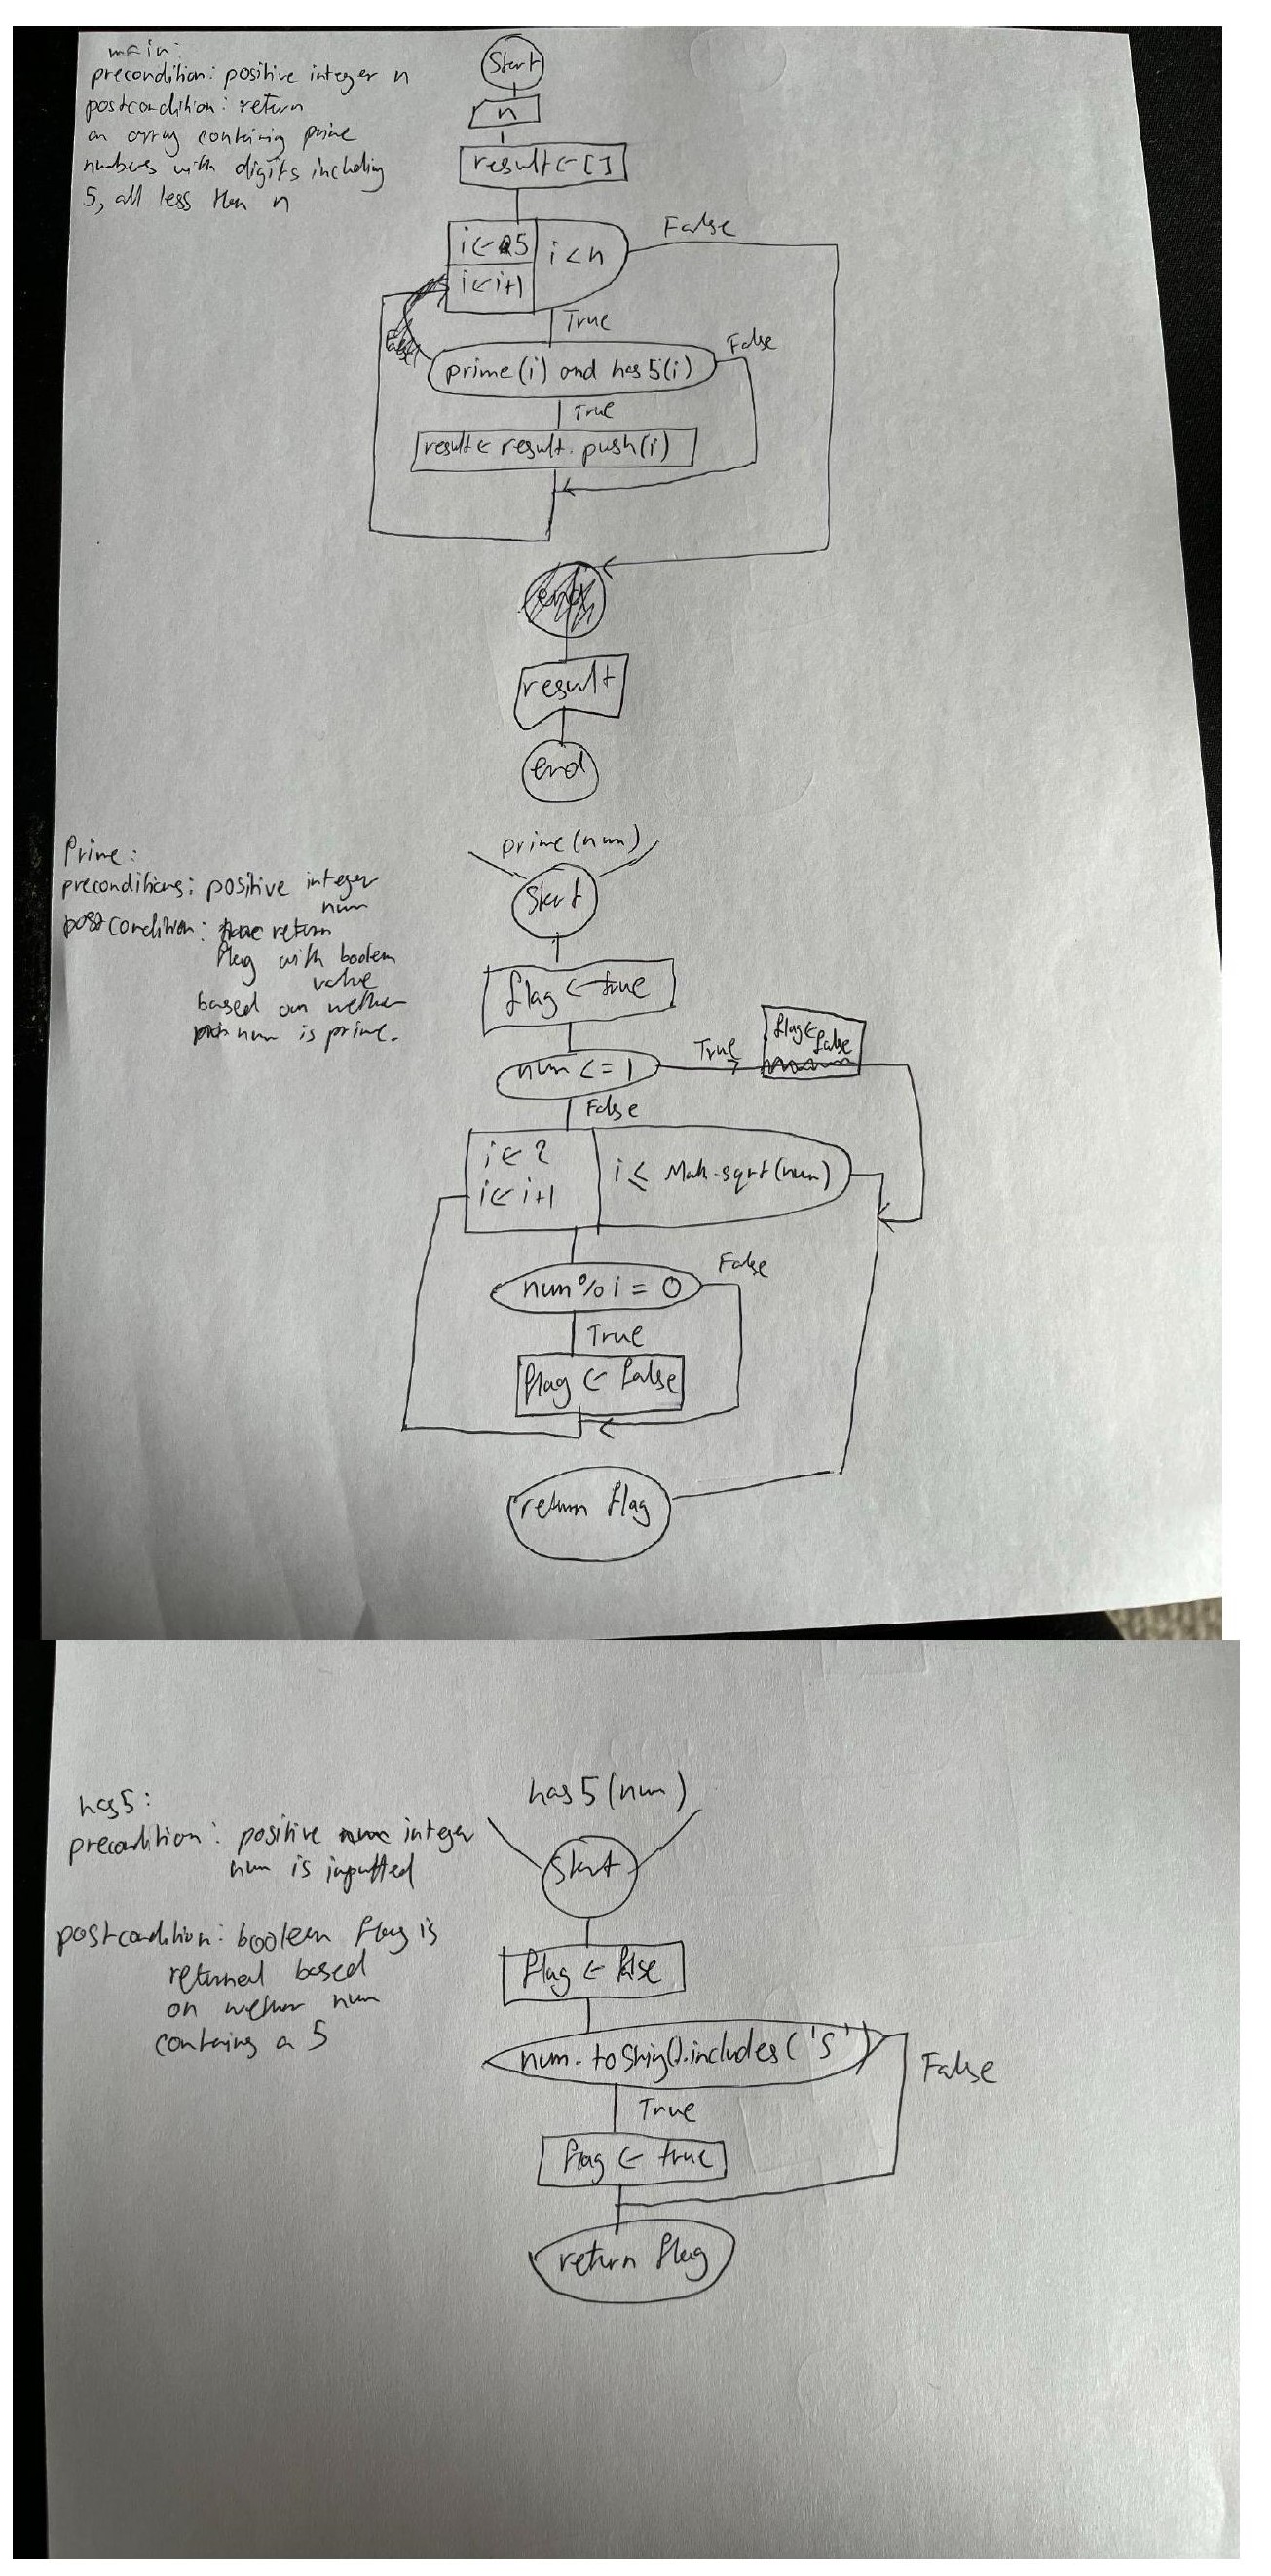 main:
precondition: positive integer n
postcondition: return
an array containing prime
numbers with digits including
5, all less than n
Start
n
result ← []
i ← 5
i ← i+1
i < n
False
True
prime(i) and has5(i)
False
True
result ← result.push(i)
result
end
Prime:
preconditions: positive integer
num
postcondition: return
flag with boolean
value
based on wether
num is prime.
prime(num)
Start
flag ← true
num <= 1
True
flag ← false
False
i ← 2
i ← i+1
i ≤ Math.sqrt(num)
num % i = 0
False
True
flag ← false
return flag
has5:
precondition: positive integer
num is inputted
postcondition: boolean flag is
returned based
on wether num
contains a 5
has5(num)
Start
flag ← false
num.toString().includes('5')
False
True
flag ← true
return flag